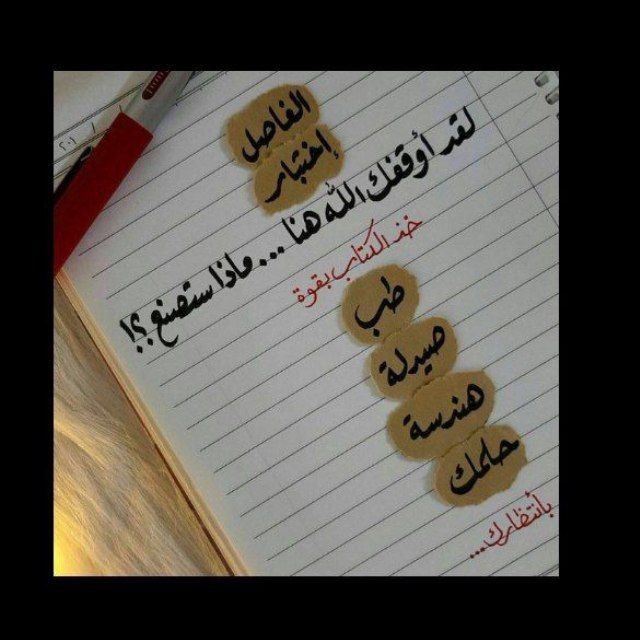 الفاصل
إختبار
لقد أوقفك الله هنا ... ماذا ستصنع ؟!
خذ الكتاب بقوة
طب
صيدلة
هندسة
حلمك
بأنتظارك...